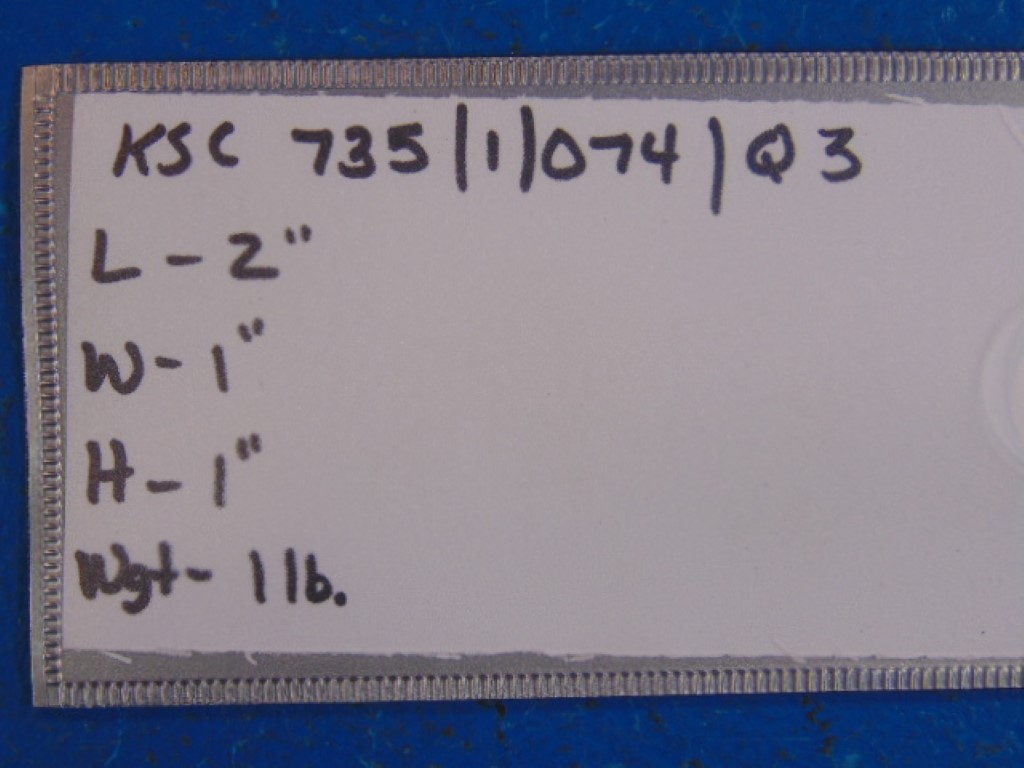 KSC 735/1/074/Q3
L - 2"
W - 1"
H - 1"
Wgt - 1 lb.